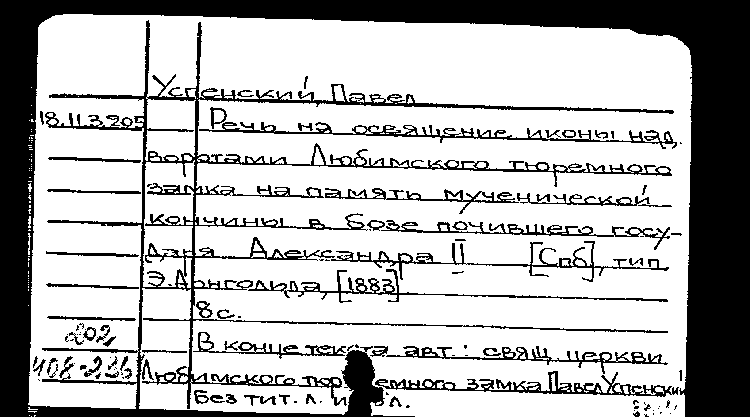 Успенский, Павел
18.113.205 Речь на освящение иконы над
воротами Любимского тюремного
замка на память мученической
кончины в бозе почившего госу-
даря Александра II [Спб], тип.
Э. Арнгольда, [1883]
8с.
202
В конце текста авт.: свящ. церкви
408-236 Любимского тюремного замка Павел Успенский
Без тит. л. и обл.